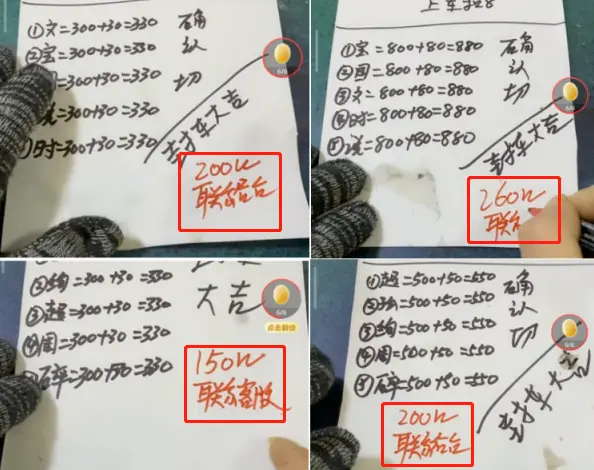 ①文=300+30=330
②宝=300+30=330
=300+30=330
=300+30=330
时=300+30=330
确
认
切
封车大吉
6/6
200n
联给台
上车
①宝=800+80=880
②周=800+80=880
③文=800+80=880
④时=800+80=880
=800+80=880
确
认
切
封车大吉
6/6
260n
联台
=300+30=330
③超=300+30=330
④周=300+30=330
⑤石碎=300+30=330
大吉
6/6
点击翻倍
150n
联系客版
①超=500+50=550
=500+50=550
=500+50=550
④周=500+50=550
⑤石碎=500+50=550
确
认
切
封车大吉
6/6
200n
联给台